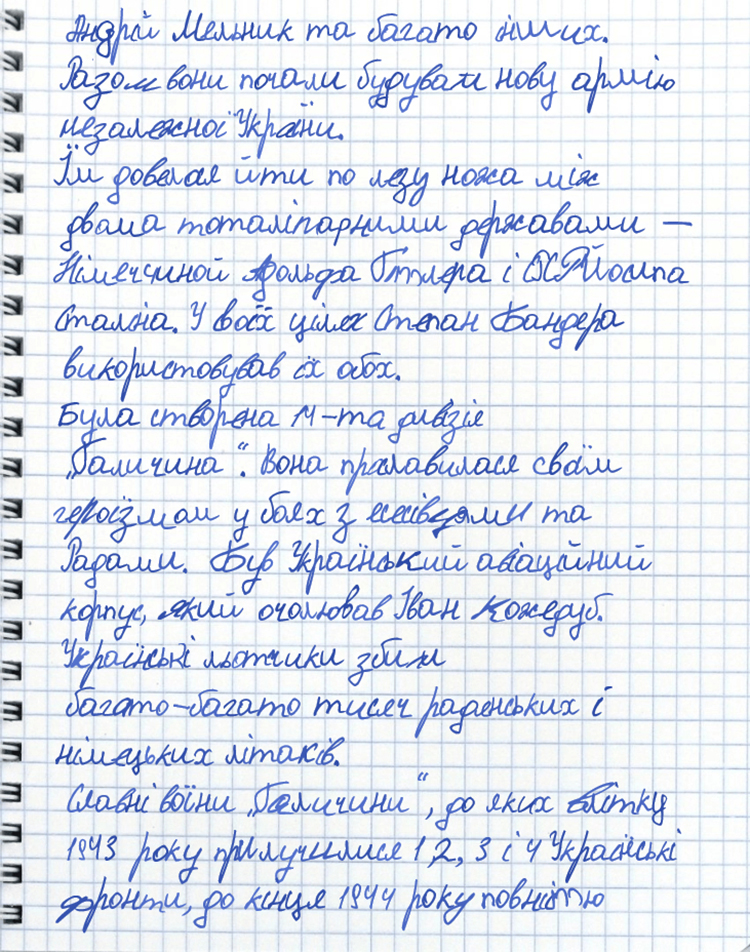 Андрій Мельник та багато інших.
Разом вони почали будувати нову армію
незалежної України.
Їм довелося йти по лезу ножа між
двома тоталітарними державами —
Німеччиною Адольфа Гітлера і СРСР Йосипа
Сталіна. У своїх цілях Степан Бандера
використовував їх обох.
Була створена 14-та дивізія
„Галичина“. Вона прославилася своїм
героїзмом у боях з есесівцями та
Радами. Був Український авіаційний
корпус, який очолював Іван Кожедуб.
Українські льотчики збили
багато-багато тисяч радянських і
німецьких літаків.
Славні воїни „Галичини“, до яких влітку
1943 року прилучилися 1, 2, 3 і 4 Українські
фронти, до кінця 1944 року повністю